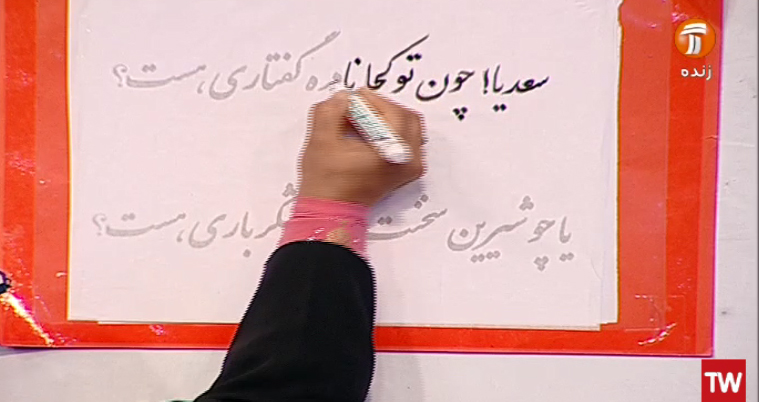 زنده
سعدیا! چون تو کجا نادره گفتاری هست؟
یا چو شیرین سخنت شکرباری هست؟
TW